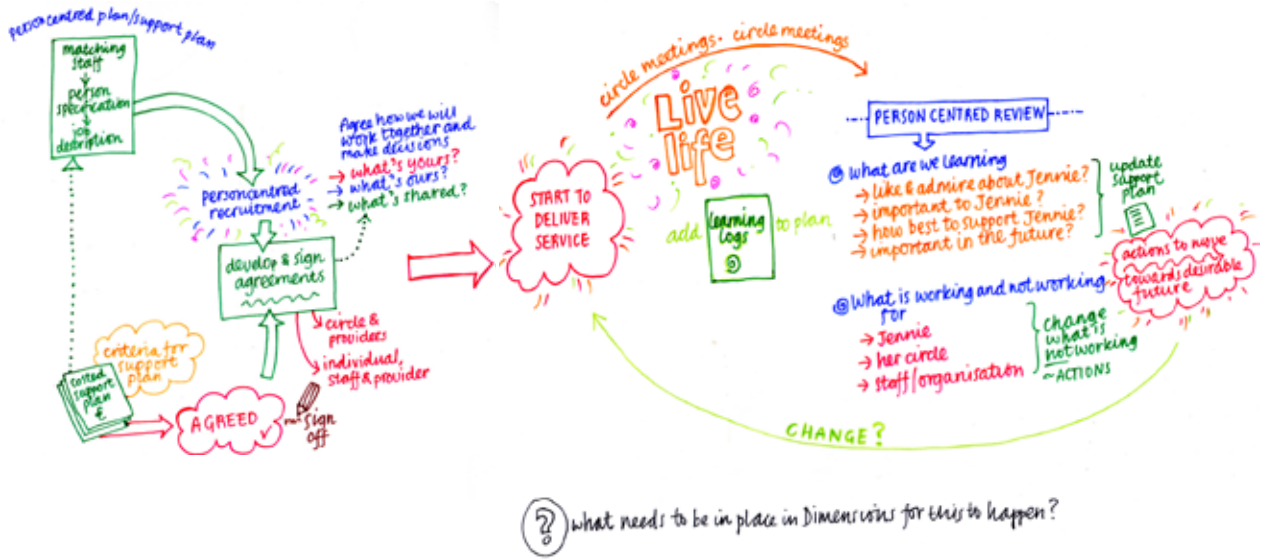 person centred plan/support plan
matching
staff
person
specification
job
description
person centred
recruitment
Agree how we will
work together and
make decisions
→ what's yours?
→ what's ours?
→ what's shared?
develop & sign
agreements
→ circle &
providers
→ individual,
staff & provider
criteria for
support
plan
costed
support
plan
£
AGREED ✓
sign
off
START TO
DELIVER
SERVICE
circle meetings. circle meetings
Live
life
add learning logs to plan
PERSON CENTRED REVIEW
what are we learning
→ like & admire about Jennie?
→ important to Jennie?
→ how best to support Jennie?
→ important in the future?
update
support
plan
actions to move
towards desirable
future
What is working and not working
for
→ Jennie
→ her circle
→ staff/organisation
change
what is
not working
~ACTIONS
CHANGE?
? what needs to be in place in Dimensions for this to happen?